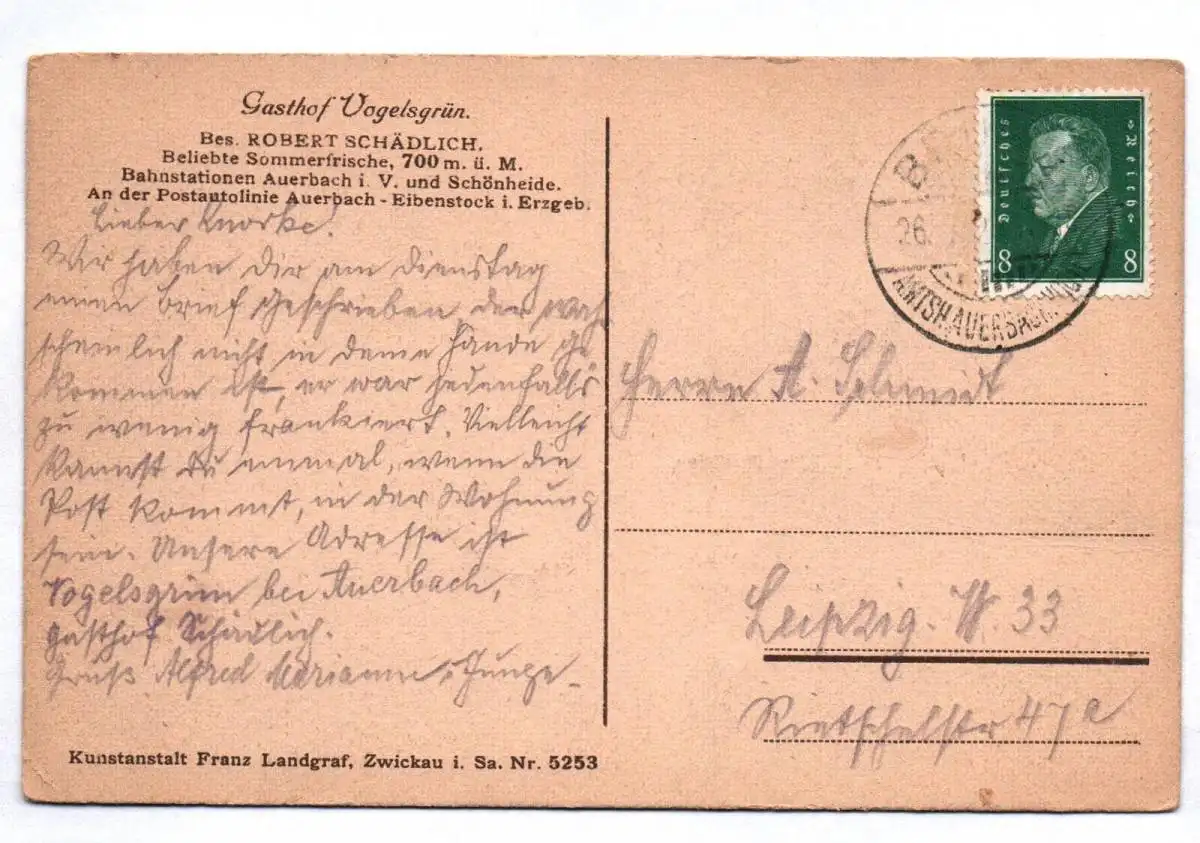 Gasthof Vogelsgrün.
Bes. ROBERT SCHÄDLICH.
Beliebte Sommerfrische, 700 m. ü. M.
Bahnstationen Auerbach i. V. und Schönheide.
An der Postautolinie Auerbach - Eibenstock i. Erzgeb.
Lieber Knorke!
Wir haben Dir am Dienstag
einen Brief geschrieben der wahr
scheinlich nicht in deine Hände ge
kommen ist, er war jedenfalls
zu wenig frankiert. Vielleicht
kannst Du einmal, wenn die
Post kommt, in der Wohnung
sein. Unsere Adresse ist
Vogelsgrün bei Auerbach,
Gasthof Schädlich.
Gruß Alfred Marianne
Kunstanstalt Franz Landgraf, Zwickau i. Sa. Nr. 5253
Deutsches Reich
8 8
26.
AMTSH. AUERBACH
Herrn A. Schmidt
Leipzig. W. 33
Rietschelstr 47c